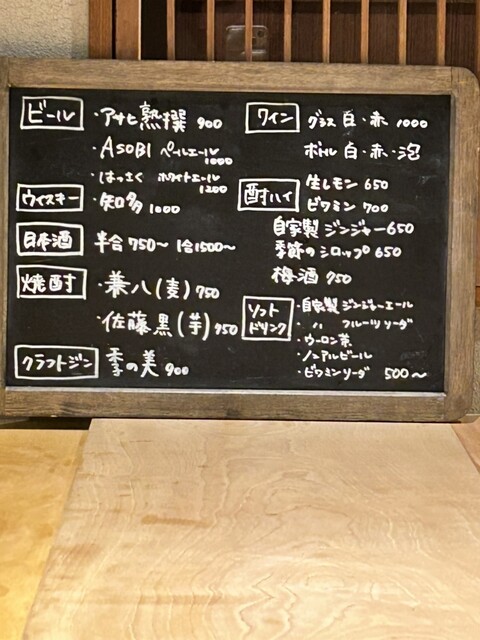 ビール
・アサヒ熟撰 900
・ASOBI ペールエール 1000
・はっさく ホワイトエール 1200
ウィスキー
・知多 1000
日本酒
半合 750〜 1合1500〜
焼酎
・兼八(麦) 750
・佐藤黒(芋) 950
クラフトジン
季の美 900
ワイン
グラス 白・赤 1000
ボトル 白・赤・泡
酎ハイ
生レモン 650
ビワミン 700
自家製 ジンジャー 650
季節のシロップ 650
梅酒 750
ソフトドリンク
・自家製 ジンジャーエール
・ 〃 フルーツソーダ
・ウーロン茶
・ノンアルビール
・ビワミンソーダ 500〜